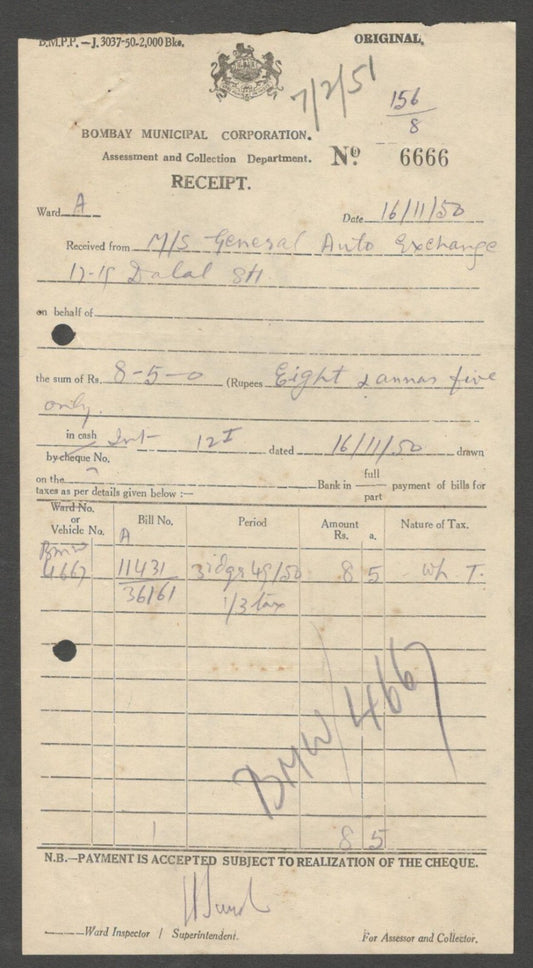 B.M.P.P.—J. 3037-50-2,000 Bks.
ORIGINAL.
7/2/51
156
8
BOMBAY MUNICIPAL CORPORATION.
Assessment and Collection Department.
No. 6666
RECEIPT.
Ward A
Date 16/11/50
Received from M/S General Auto Exchange
Dalal
on behalf of
the sum of Rs. 8-5-0 (Rupees Eight & annas five
only.
in cash
by cheque No. 12 dated 16/11/50 drawn
on the Bank in full/part payment of bills for
taxes as per details given below :—
Ward No. or Vehicle No. Bill No. Period Amount Rs. a. Nature of Tax.
A
BMW
4667 11431 49/50 8 5 Wh T.
36161 1/3 tax
BMW/4667
1 8 5
N.B.—PAYMENT IS ACCEPTED SUBJECT TO REALIZATION OF THE CHEQUE.
Ward Inspector / Superintendent.
For Assessor and Collector.